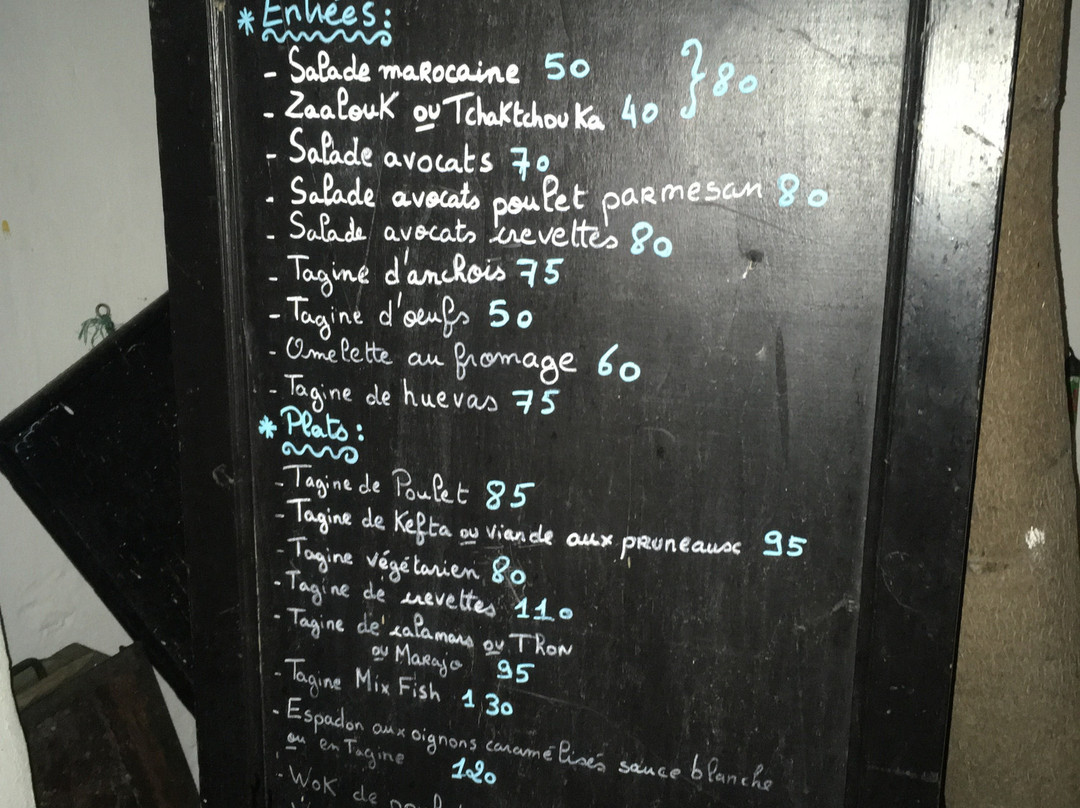 * Entrées:
- Salade marocaine 50 } 80
- Zaalouk ou Tchaktchouka 40
- Salade avocats 70
- Salade avocats poulet parmesan 80
- Salade avocats crevettes 80
- Tagine d'anchois 75
- Tagine d'oeufs 50
- Omelette au fromage 60
- Tagine de huevas 75
* Plats:
- Tagine de Poulet 85
- Tagine de Kefta ou viande aux pruneaux 95
- Tagine végétarien 80
- Tagine de crevettes 110
- Tagine de calamars ou Thon
ou Marajo 95
- Tagine Mix Fish 130
- Espadon aux oignons caramélisés sauce blanche
ou en Tagine 120
- Wok de